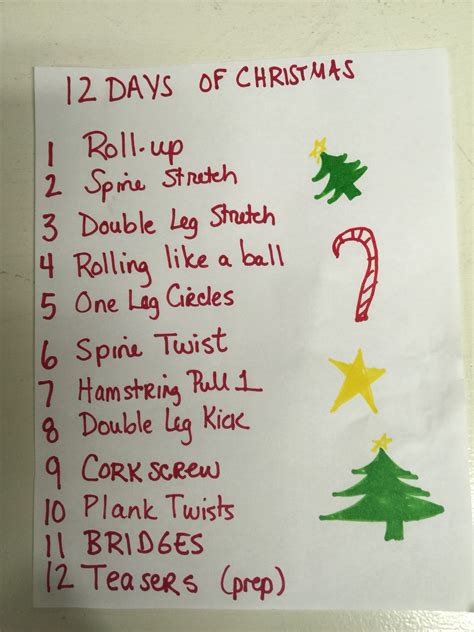 12 DAYS OF CHRISTMAS
1 Roll-up
2 Spine Stretch
3 Double Leg Stretch
4 Rolling like a ball
5 One Leg Circles
6 Spine Twist
7 Hamstring Pull 1
8 Double Leg Kick
9 CORKSCREW
10 Plank Twists
11 BRIDGES
12 TEASERS (prep)